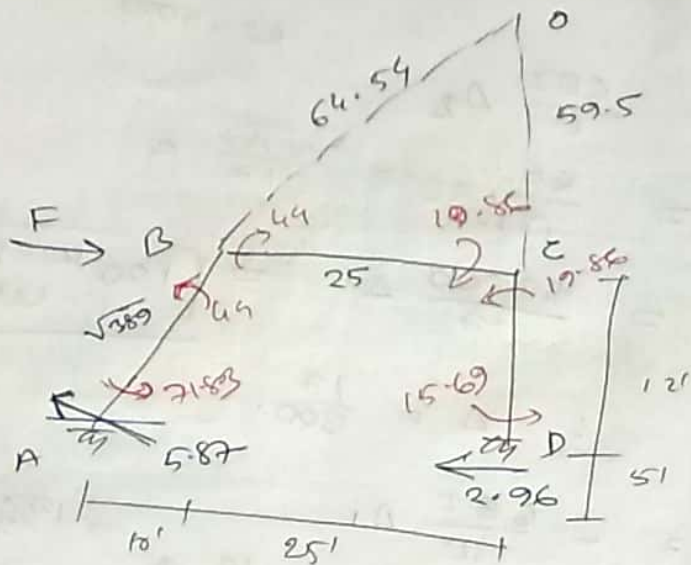 O
64.54
59.5
F
B
44
19.86
C
25
19.86
√389
44
71.83
15.69
12'
A
5.87
D
2.96
5'
10'
25'